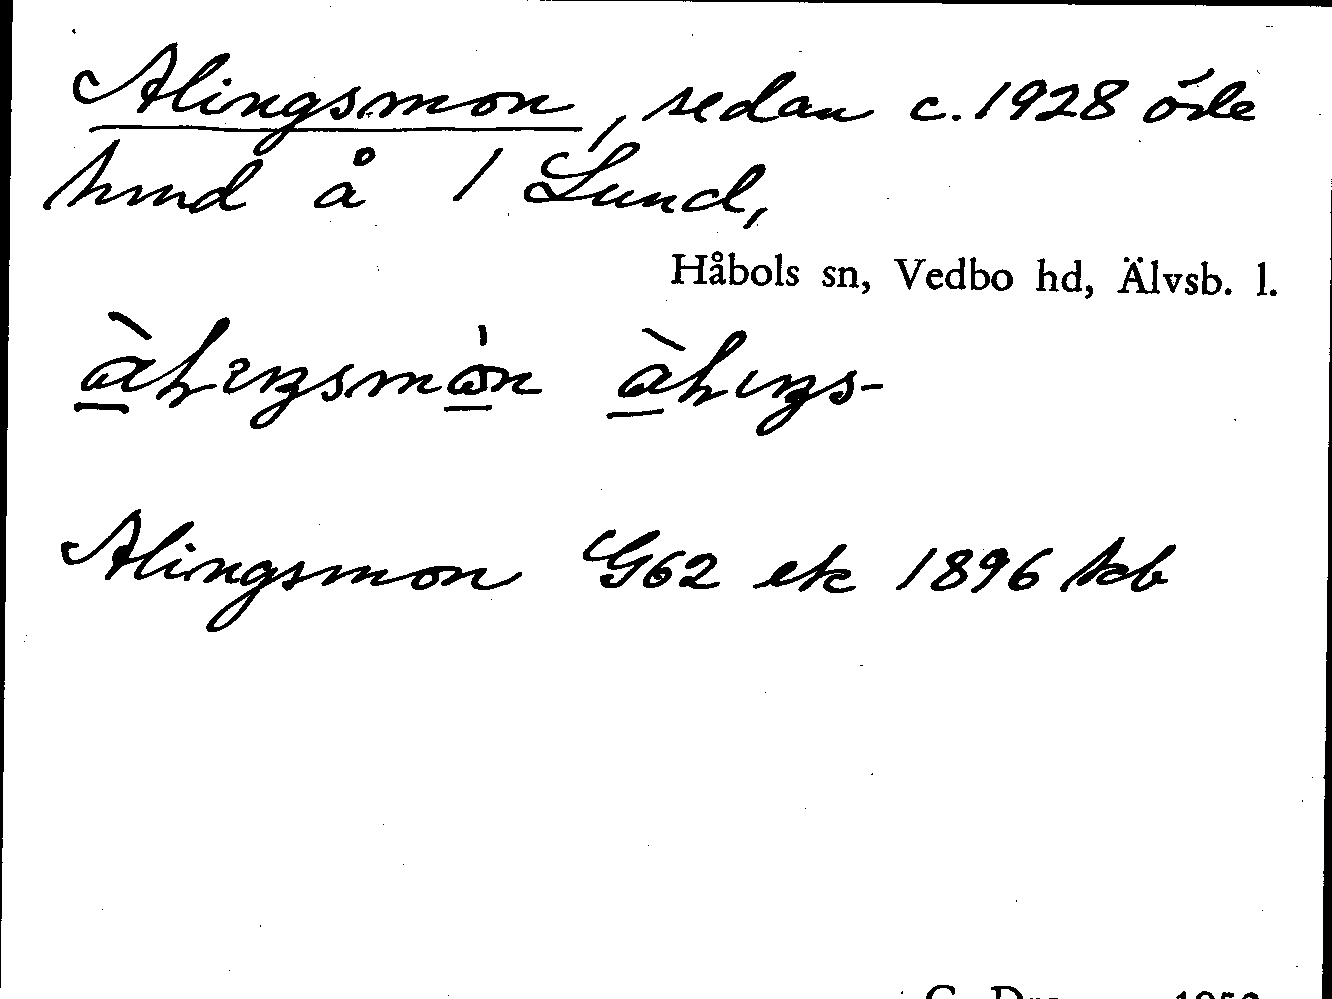 Alingsmon, sedan c. 1928 öde
hmd å 1 Lund,
Håbols sn, Vedbo hd, Älvsb. l.
Alingsmon G62 ek 1896 kb